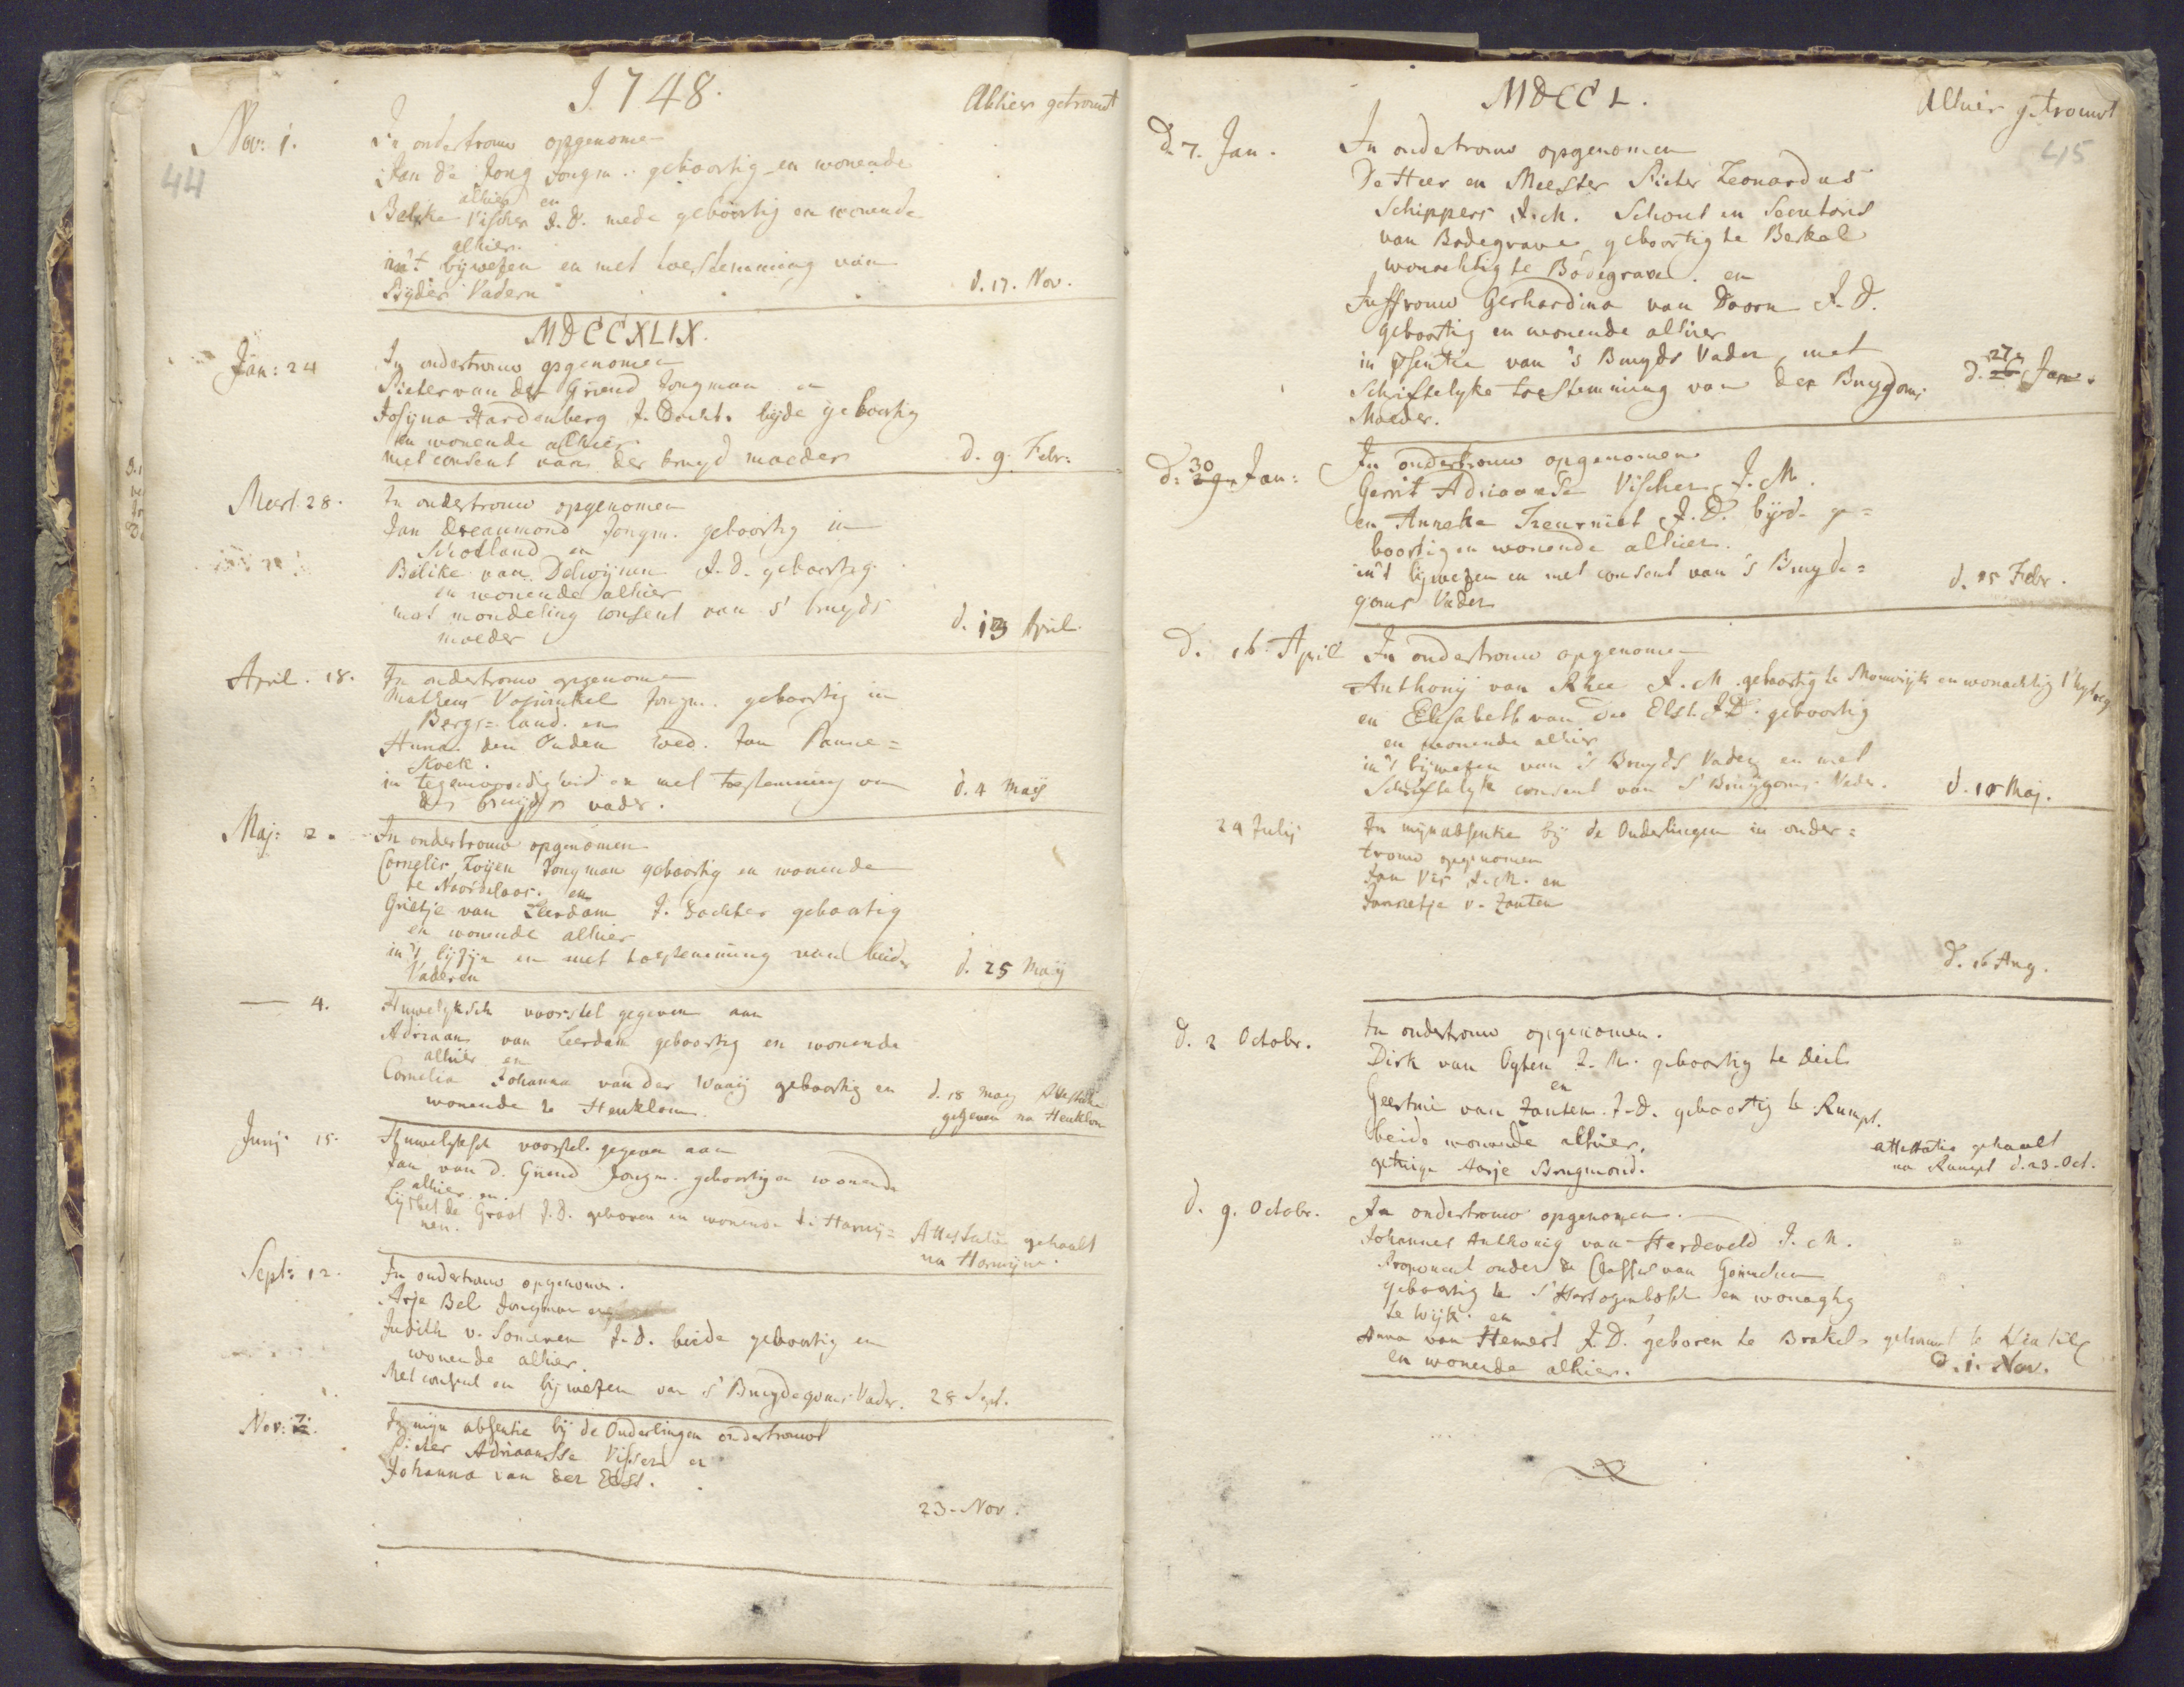 1748.
Alhier getrouwt
44
Nov: 1.
In ondertrouw opgenomen
Jan de Jong Jongm. geboortig en wonende
alhier en
Belike Vischer J.D. mede geboortig en wonende
alhier.
in't bijwezen en met toestemming van
Bijder Vadern
d. 17. Nov.
MDCCXLIX.
Jan: 24
In ondertrouw opgenomen
Pieter van der Griend Jongman en
Josyna Hardenberg J. Docht. bijde geboortig
en wonende alhier
met consent van der bruyd moeder
d. 9. Febr:
Meert. 28.
In ondertrouw opgenomen
Jan Dreaumond Jongm. geboortig in
Schotland en
Belike van Delwijnen J.d. geboortig
en wonende alhier
met mondeling consent van s' bruyds
moeder
d. 13 April
April. 18.
In ondertrouw opgenomen
Matheus Voswinkel Jongm. geboortig in
Bergs=land. en
Anna den Ouden wed. Jan Panne=
koek.
in tegenwoordigheid en met toestemming van
der bruyds vader.
d. 4 Maij
Maj: 2.
In ondertrouw opgenomen
Cornelis Looijen Jongman geboortig en wonende
te Noordeloos. en
Grietje van Leerdam J. Dochter geboortig
en wonende alhier
in't bijzijn en met toestemming van beider
Vaderen
d. 25 Maij
— 4.
Huwelyksch voorstel gegeven aan
Adriaan van Leerdam geboortig en wonende
alhier en
Cornelia Johanna van der Waaij geboortig en
wonende te Heuklom.
d. 18 Maij Attestatie
gegeven na Heuklom
Junj. 15.
Huwelyksch voorstel. gegeven aan
Jan van d. Griend Jongm. geboortig en wonende
alhier. en.
Lijsbet de Groot J.D. geboren en wonende te Herwij=
nen.
Attestatie gehaalt
na Herwijnen.
Sept: 12.
In ondertrouw opgenomen.
Arje Bel Jongman en
Judith v. Someren J.d. beide geboortig en
wonende alhier.
Met consent en bijwezen van s' Bruydegoms Vader.
28 Sept.
Nov: 7.
In mijn absentie bij de Ouderlingen ondertrouwt
Pieter Adriaansse Visser en
Johanna van der Elst.
23. Nov.
MDCCL.
Alhier getrouwt
45
d. 7. Jan.
In ondertrouw opgenomen
De Heer en Meester Pieter Leonardus
Schippers J.M. Schout en Secretaris
van Bodegrave, geboortig te Berkel
wonachtig te Bodegrave. en
Juffrouw Gerhardina van Doorn J.D.
geboortig en wonende alhier
in psentie van 's Bruyds Vader, met
Schriftelyke toestemming van der Bruygoms
Moeder.
d. 27 Jan.
d: 30 Jan:
In ondertrouw opgenomen
Gerrit Adriaanse Vischer J.M.
en Anneke Treurniet J.D. bijde ge=
boortig en wonende alhier.
in't bijwezen en met consent van 's Bruyde=
goms Vader
d. 15 Febr.
d. 16. April
In ondertrouw opgenomen
Anthonij van Rhee J.M. geboortig te Mouwijk en wonachtig
en Elisabeth van der Elst J.D. geboortig
en wonende alhier
in't bijwezen van 's Bruyds Vader, en met
Schriftelyk consent van s' Bruijgoms Vader.
d. 10 Maj.
24 Julij
In mijn absentie bij de Ouderlingen in onder=
trouw opgenomen
Jan Vis J.M. en
Jannetje v. Zanten
d. 16 Aug.
d. 2 Octobr.
In ondertrouw opgenomen.
Dirk van Ogten J.M. geboortig te Deil
en
Geertrui van Zanten. J.d. geboortig te Rumpt.
beide wonende alhier.
getuige Aarje Brugmond.
attestatie gehaalt
na Rumpt d. 23. Oct.
d. 9. Octobr.
In ondertrouw opgenomen.
Johannes Anthonij van Herdeveld J.M.
Proponent onder de Classis van Gorinchem
geboortig te s'Hertogenbosch en wonagtig
te Wijk. en
Anna van Hemert J.D. geboren te Brakel
en wonende alhier.
getrouwt te
d. 1. Nov.